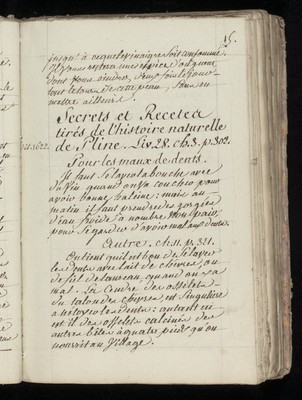 15.
jusqu'à ce que le vinaigre soit consommé
tout
mettre ailleurs.
Secrets et Recetes
tirés de l'histoire naturelle
de Pline. Liv. 28. ch. 3. p. 302.
Pour les maux de dents.
Il faut se laver la bouche avec
du vin quand on va coucher pour
avoir bonne haleine: mais au
matin il faut prendre des gorgées
d'eau froide à nombre
pour se garder d'avoir mal aux dents.
Autre. ch. 11. p. 321.
On tient qu'il est bon de se laver
les dents avec lait de chevre, ou
de fiel de taureau, quand on y a
mal. La Cendre des osselets
du talon des chevres, est singuliere
a nettoyer les dents: autant en
est il des osselets calcinés des
autres bêtes à quatre pieds qu'on
nourrit au Village.